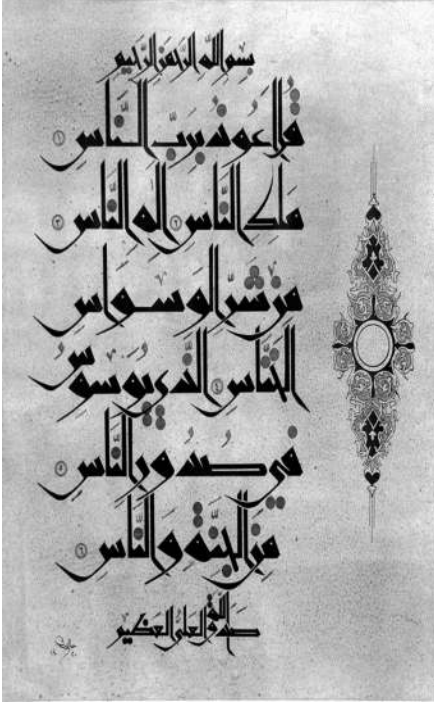 بِسْمِ اللّٰهِ الرَّحْمٰنِ الرَّحِيمِ
قُلْ أَعُوذُ بِرَبِّ النَّاسِ ١
مَلِكِ النَّاسِ ٢ إِلٰهِ النَّاسِ ٣
مِنْ شَرِّ الْوَسْوَاسِ
الْخَنَّاسِ ٤ الَّذِي يُوَسْوِسُ
فِي صُدُورِ النَّاسِ ٥
مِنَ الْجِنَّةِ وَالنَّاسِ ٦
صَدَقَ اللّٰهُ الْعَلِيُّ الْعَظِيمُ